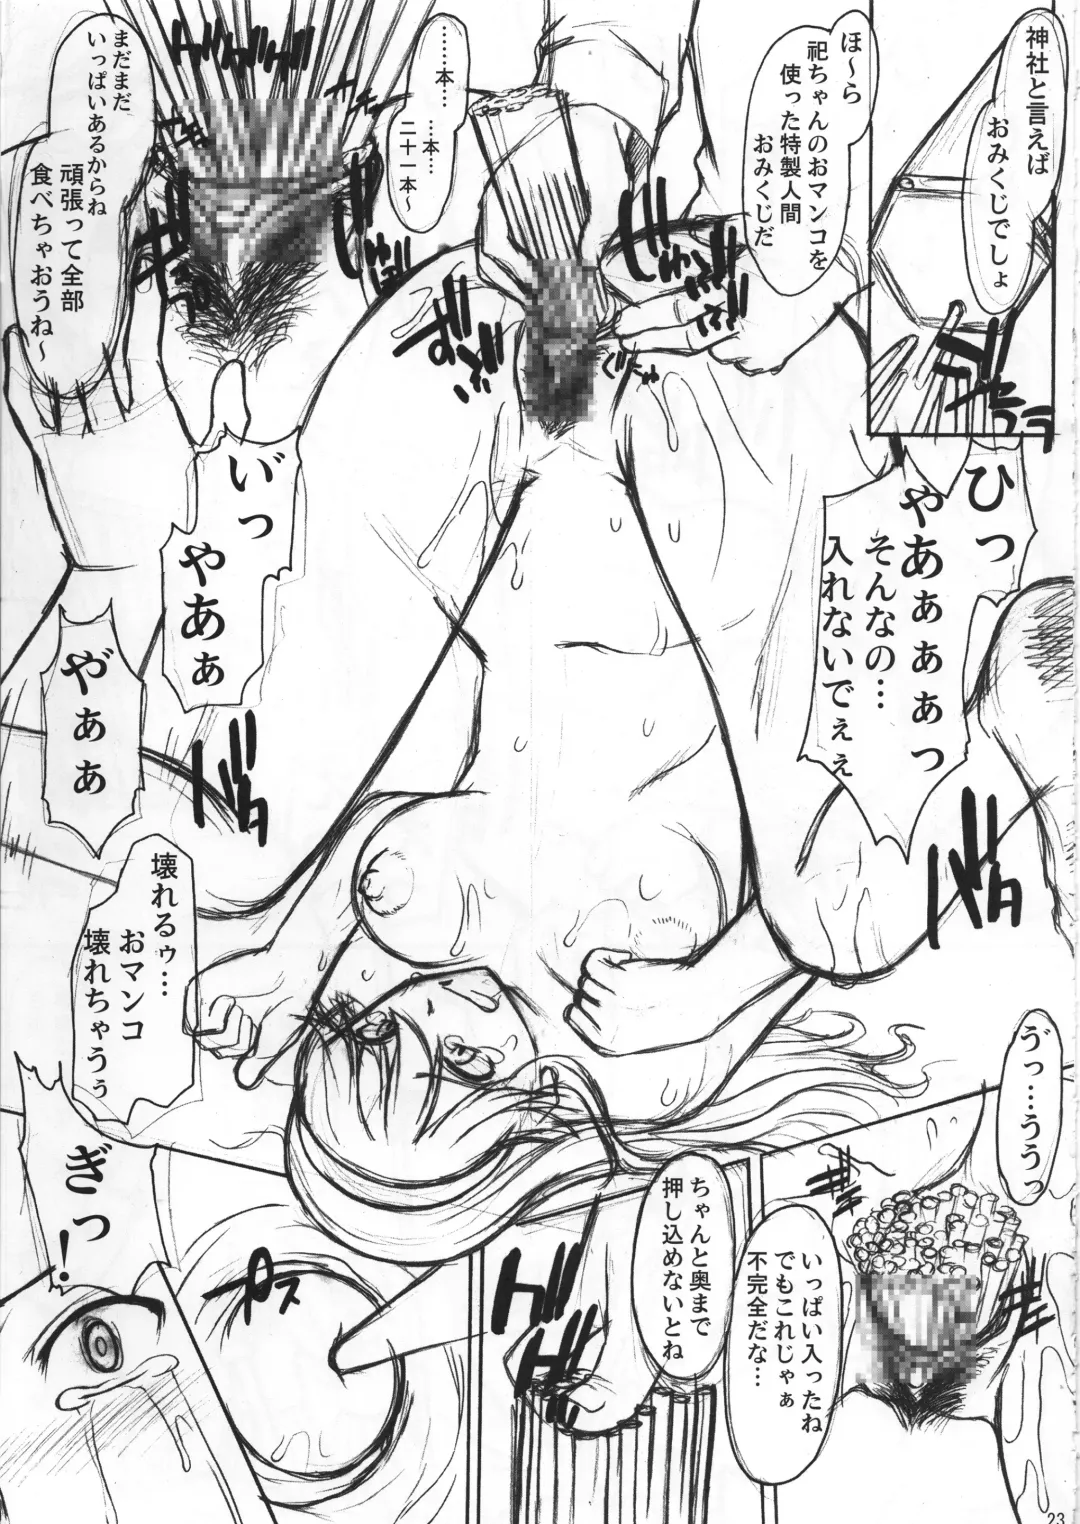 神社と言えば
おみくじでしょ
ほ～ら
祀ちゃんのおマンコを
使った特製人間
おみくじだ
……本…
…本…
二十一本～
まだまだ
いっぱいあるからね
頑張って全部
食べちゃおうね～
ひっ
やあぁぁぁっ
そんなの…
入れないでぇぇ
い゛っ
やあぁ
や゛ぁぁ
壊れるぅ…
おマンコ
壊れちゃうぅ
う゛っ…ううっ
いっぱい入ったね
でもこれじゃぁ
不完全だな…
ちゃんと奥まで
押し込めないとね
ぎっ！
23